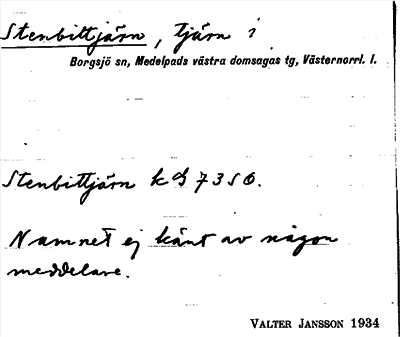 Stenbittjärn, tjärn i
Borgsjö sn, Medelpads västra domsagas tg, Västernorrl. l.
Stenbittjärn k 7350.
Namnet ej känt av någon
meddelare.
VALTER JANSSON 1934